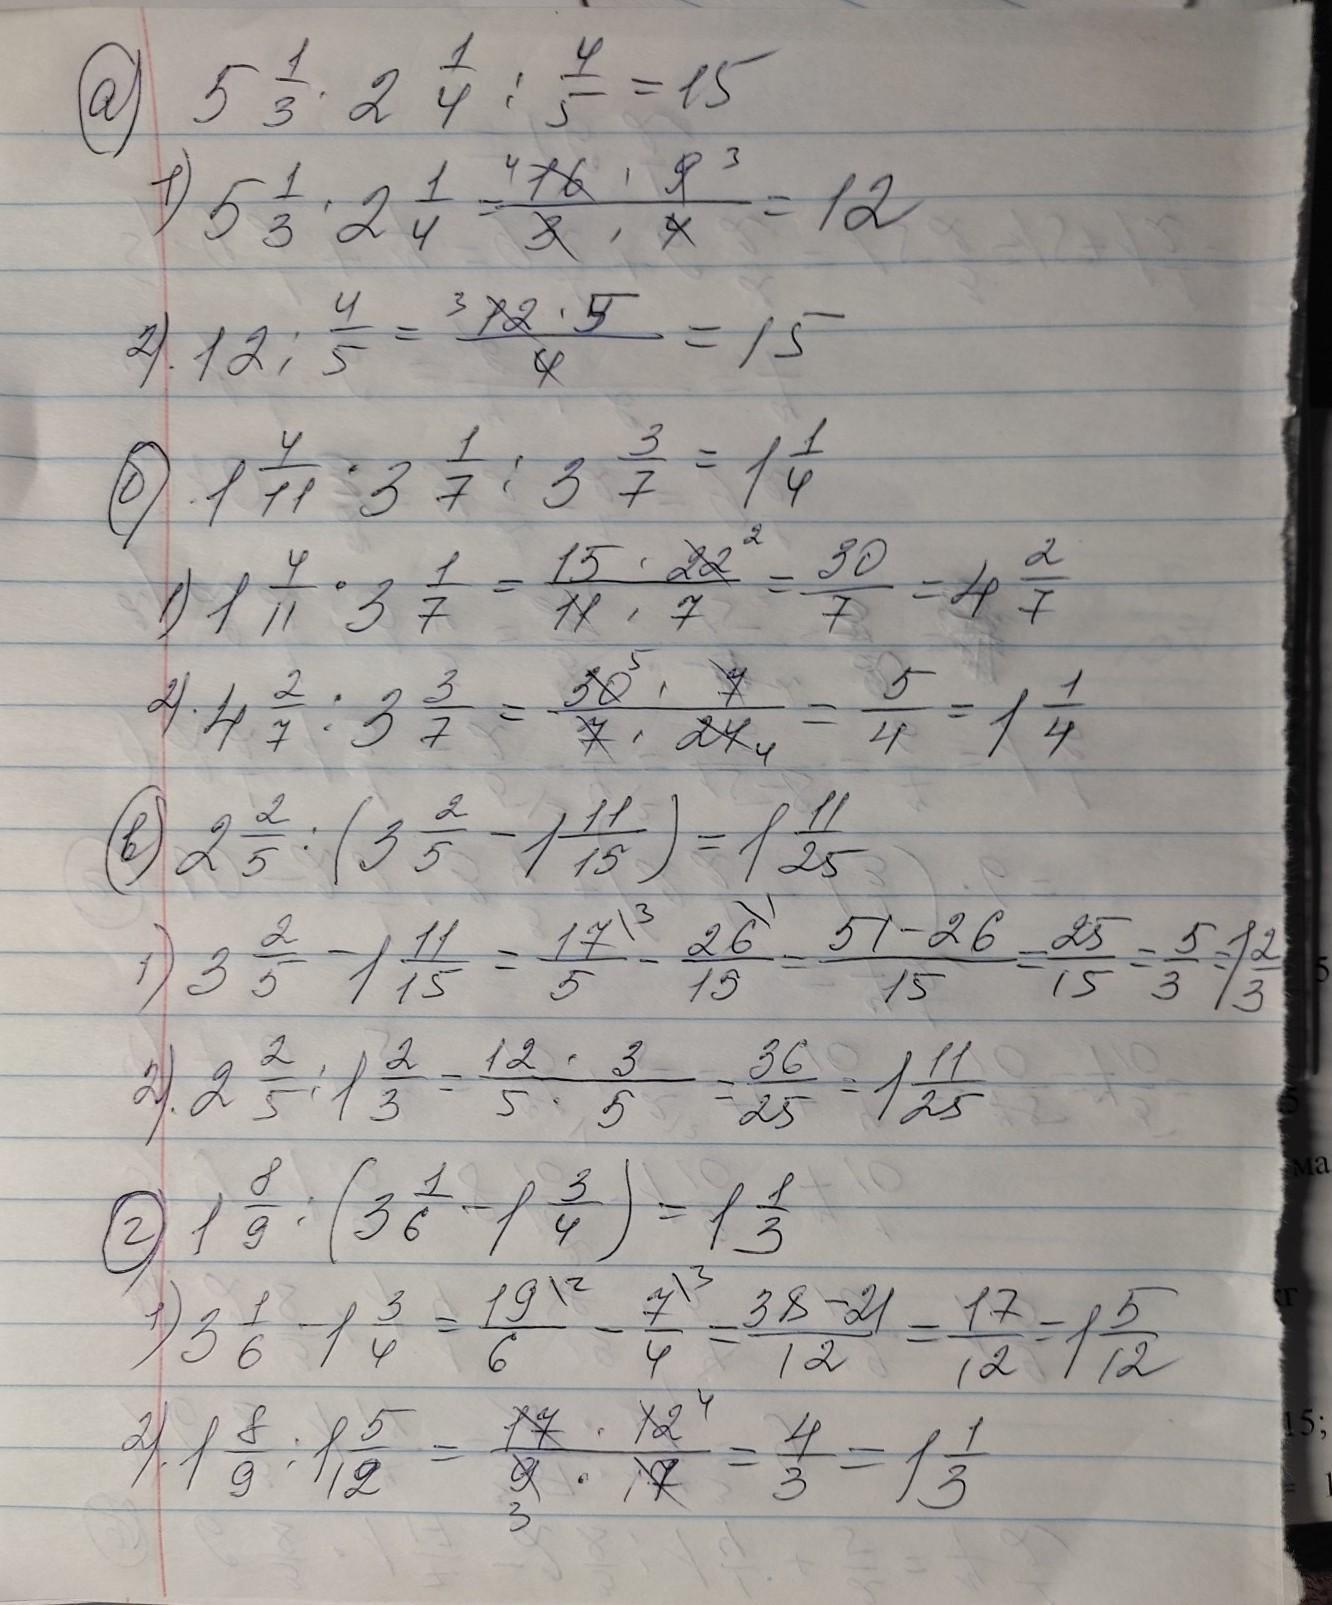 а) 5 1/3 · 2 1/4 : 4/5 = 15
1) 5 1/3 · 2 1/4 = ⁴16 · 9³ / 3 · 4 = 12
2). 12 : 4/5 = ³12 · 5 / 4 = 15
б) 1 4/11 · 3 1/7 : 3 3/7 = 1 1/4
1) 1 4/11 · 3 1/7 = 15 · 22² / 11 · 7 = 30/7 = 4 2/7
2). 4 2/7 : 3 3/7 = 30⁵ · 7 / 7 · 24₄ = 5/4 = 1 1/4
в) 2 2/5 : (3 2/5 − 1 11/15) = 1 11/25
1) 3 2/5 − 1 11/15 = 17\³/5 − 26\¹/15 = 51−26/15 = 25/15 = 5/3 = 1 2/3
2). 2 2/5 : 1 2/3 = 12 · 3 / 5 · 5 = 36/25 = 1 11/25
г) 1 8/9 : (3 1/6 − 1 3/4) = 1 1/3
1) 3 1/6 − 1 3/4 = 19\²/6 − 7\³/4 = 38−21/12 = 17/12 = 1 5/12
2). 1 8/9 : 1 5/12 = 17 · 12⁴ / 9₃ · 17 = 4/3 = 1 1/3